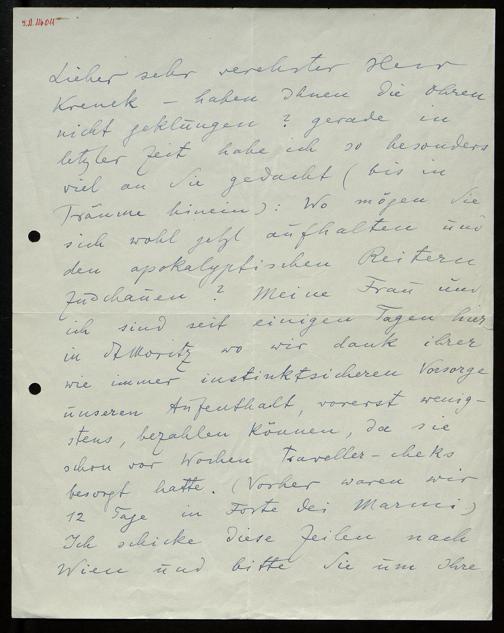 Lieber sehr verehrter Herr
Krenek – haben Ihnen die Ohren
nicht geklungen? gerade in
letzter Zeit habe ich so besonders
viel an Sie gedacht (bis in
Träume hinein): Wo mögen Sie
sich wohl jetzt aufhalten und
den apokalyptischen Reitern
zuschauen? Meine Frau und
ich sind seit einigen Tagen hier
in St Moritz wo wir dank ihrer
wie immer instinktsicheren Vorsorge
unseren Aufenthalt, vorerst wenig-
stens, bezahlen können, da sie
schon vor Wochen Traveller-cheks
besorgt hatte. (Vorher waren wir
12 Tage in Forte dei Marmi)
Ich schicke diese Zeilen nach
Wien und bitte Sie um Ihre